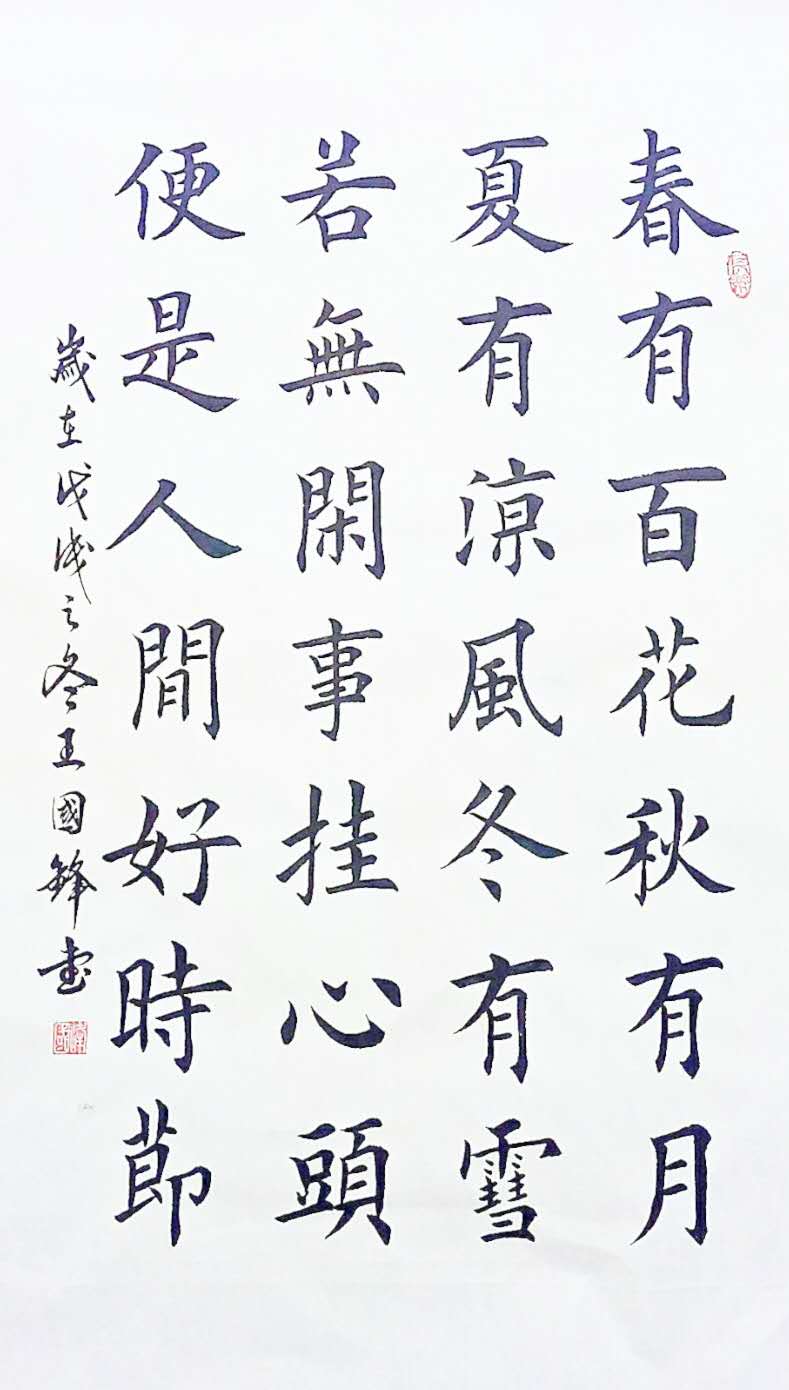 春有百花秋有月
夏有涼風冬有雪
若無閑事挂心頭
便是人間好時節
歲在戊戌之冬王國鋒書